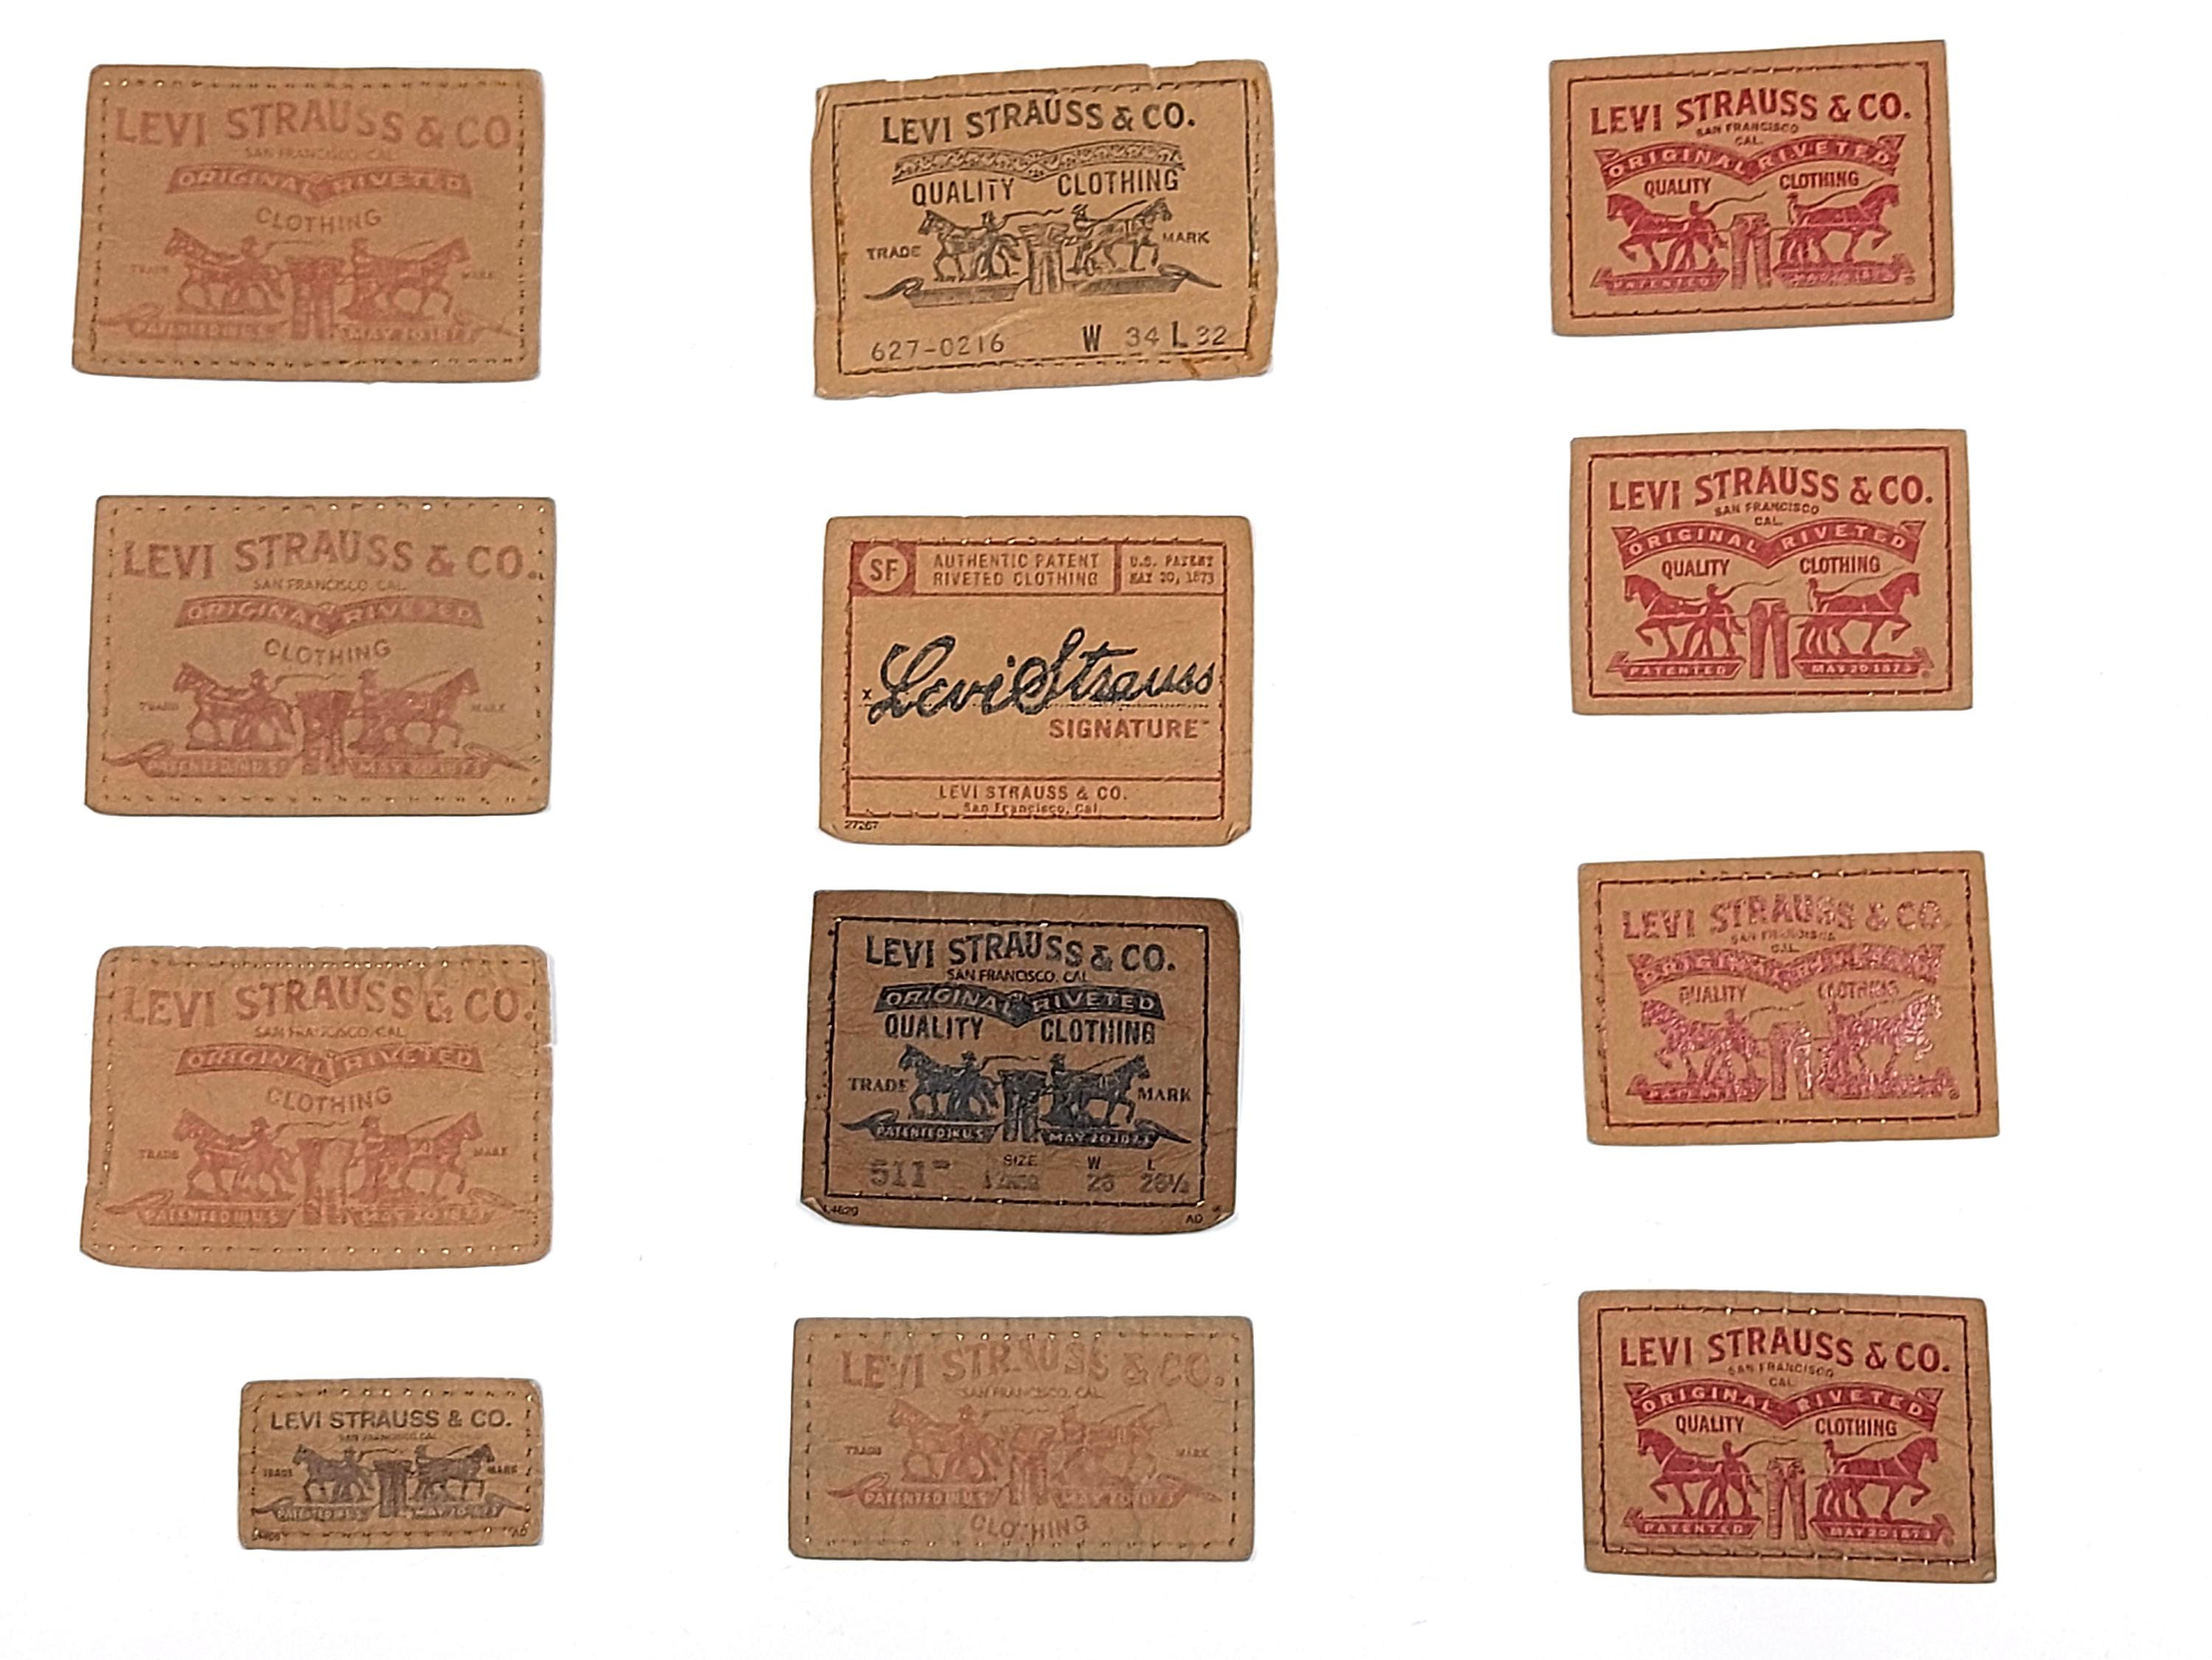 LEVI STRAUSS & CO
SAN FRANCISCO, CAL.
ORIGINAL RIVETED
CLOTHING
TRADE MARK
PATENTED IN U.S. MAY 20 1873
LEVI STRAUSS & CO.
SAN FRANCISCO, CAL.
ORIGINAL RIVETED
CLOTHING
TRADE MARK
PATENTED IN U.S. MAY 20 1873
LEVI STRAUSS & CO.
SAN FRANCISCO, CAL.
ORIGINAL RIVETED
CLOTHING
TRADE MARK
PATENTED IN U.S. MAY 20 1873
LEVI STRAUSS & CO.
SAN FRANCISCO, CAL.
TRADE MARK
PATENTED IN U.S. MAY 20 1873
AD
LEVI STRAUSS & CO.
QUALITY CLOTHING
TRADE MARK
627-0216 W 34 L 32
SF AUTHENTIC PATENT U.S. PATENT
RIVETED CLOTHING MAY 20, 1873
x Levi Strauss
SIGNATURE™
LEVI STRAUSS & CO.
San Francisco, Cal.
27267
LEVI STRAUSS & CO.
SAN FRANCISCO, CAL.
ORIGINAL RIVETED
QUALITY CLOTHING
TRADE MARK
PATENTED IN U.S. MAY 20 1873
SIZE W L
511™ 26½
AD
LEVI STRAUSS & CO.
SAN FRANCISCO, CAL.
TRADE MARK
PATENTED IN U.S. MAY 20 1873
CLOTHING
LEVI STRAUSS & CO.
SAN FRANCISCO
CAL.
ORIGINAL RIVETED
QUALITY CLOTHING
PATENTED MAY 20 1873
LEVI STRAUSS & CO.
SAN FRANCISCO
CAL.
ORIGINAL RIVETED
QUALITY CLOTHING
PATENTED MAY 20 1873 ®
LEVI STRAUSS & CO.
SAN FRANCISCO
CAL.
ORIGINAL RIVETED
QUALITY CLOTHING
PATENTED
LEVI STRAUSS & CO.
SAN FRANCISCO
CAL.
ORIGINAL RIVETED
QUALITY CLOTHING
PATENTED MAY 20 1873 ®